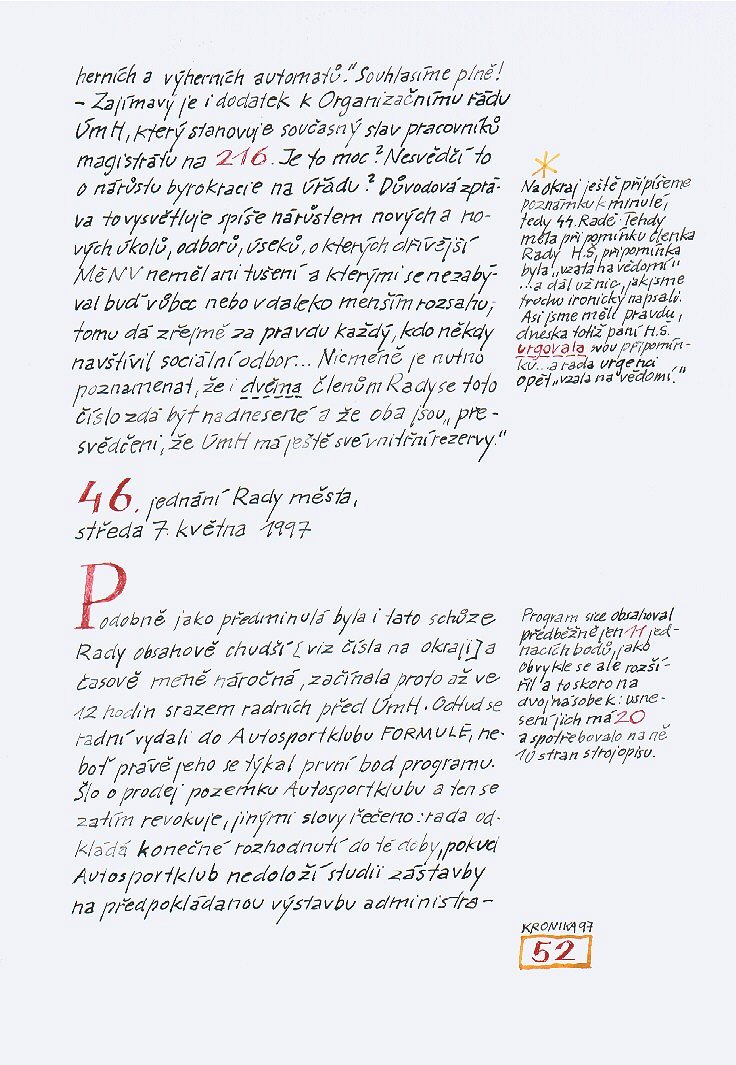 herních a výherních automatů." Souhlasíme plně!
– Zajímavý je i dodatek k Organizačnímu řádu
ÚmH, který stanovuje současný stav pracovníků
magistrátu na 216. Je to moc? Nesvědčí to
o nárůstu byrokracie na úřadu? Důvodová zprá-
va to vysvětluje spíše nárůstem nových a no-
vých úkolů, odborů, úseků, o kterých dřívější
MěNV neměl ani tušení a kterými se nezabý-
val buď vůbec nebo v daleko menším rozsahu;
tomu dá zřejmě za pravdu každý, kdo někdy
navštívil sociální odbor... Nicméně je nutno
poznamenat, že i dvěma členům Rady se toto
číslo zdá být nadnesené a že oba jsou „pře-
svědčeni, že ÚmH má ještě své vnitřní rezervy."
*
Na okraj ještě připíšeme
poznámku k minulé,
tedy 44. Radě. Tehdy
měla připomínku členka
Rady H.Š, připomínka
byla „vzata na vědomí"
...a dál už nic, jak jsme
trochu ironicky napsali.
Asi jsme měli pravdu,
dneska totiž paní H.Š.
urgovala svou připomín-
ku...a rada urgenci
opět „vzala na vědomí."
46. jednání Rady města,
středa 7. května 1997
Podobně jako předminulá byla i tato schůze
Rady obsahově chudší [viz čísla na okraji] a
časově méně náročná, začínala proto až ve
12 hodin srazem radních před ÚmH. Odtud se
radní vydali do Autosportklubu FORMULE, ne-
boť právě jeho se týkal první bod programu.
Šlo o prodej pozemku Autosportklubu a ten se
zatím revokuje, jinými slovy řečeno: rada od-
kládá konečné rozhodnutí do té doby, pokud
Autosportklub nedoloží studii zástavby
na předpokládanou výstavbu administra–
Program sice obsahoval
předběžně jen 11 jed-
nacích bodů, jako
obvykle se ale rozší-
řil a to skoro na
dvojnásobek: usne-
sení jich má 20
a spotřebovalo na ně
10 stran strojopisu.
KRONIKA 97
52